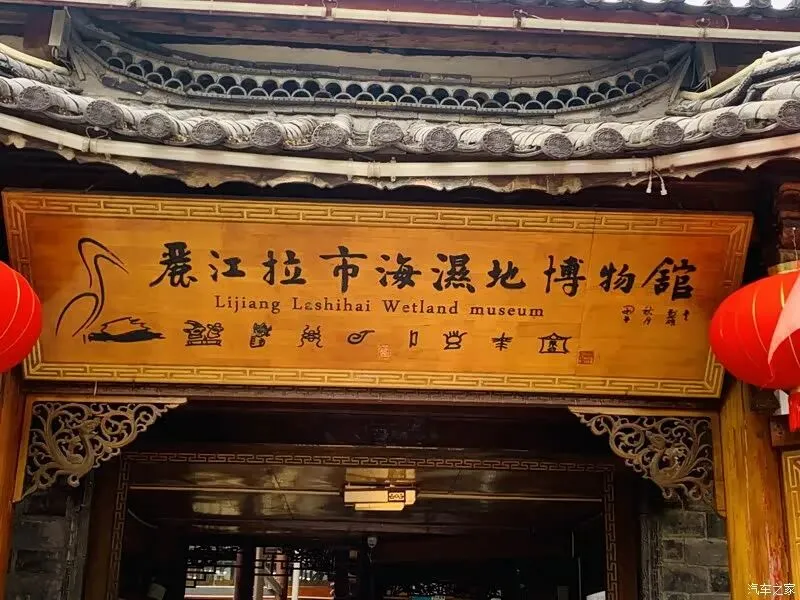 麗江拉市海濕地博物館
Lijiang Lashihai Wetland museum
汽车之家